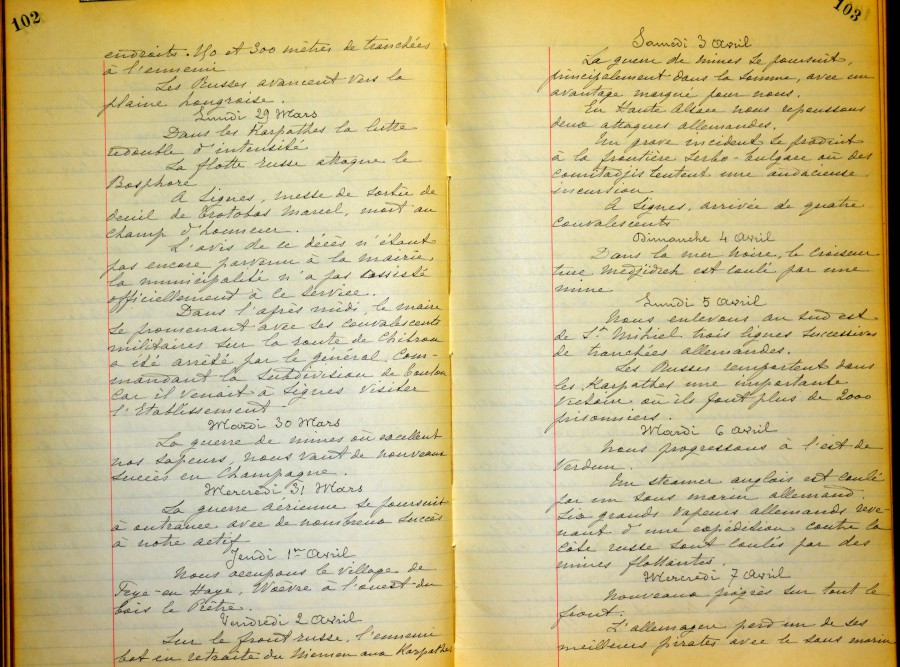 102
endroits 150 et 300 mètres de tranchées
à l'ennemi
Les Russes avancent vers la
plaine hongroise.
Lundi 29 Mars
Dans les Karpathes la lutte
redouble d'intensité
La flotte russe attaque le
Bosphore
A Signes, messe de sortie de
deuil de Trotobas Marcel, mort au
champ d'honneur.
L'avis de ce décès n'étant
pas encore parvenu à la mairie,
la municipalité n'a pas assisté
officiellement à ce service.
Dans l'après midi, le maire
se promenant avec ses convalescents
militaires sur la route de Chibron
a été arrêté par le général Com-
mandant la Subdivision de Toulon
car il venait à Signes visiter
l'Etablissement
Mardi 30 Mars
La guerre de mines où excellent
nos sapeurs, nous vaut de nouveaux
succès en Champagne.
Mercredi 31 Mars
La guerre aérienne se poursuit
à outrance avec de nombreux succès
à notre actif
Jeudi 1er Avril
Nous occupons le village de
Feye-en Haye, Woëvre à l'ouest du
bois le Prêtre.
Vendredi 2 Avril
Sur le front russe, l'ennemi
bat en retraite du Niemen aux Karpathes
103
Samedi 3 Avril
La guerre de mines se poursuit,
principalement dans la Somme, avec un
avantage marqué pour nous.
En Haute Alsace nous repoussons
deux attaques allemandes.
Un grave incident se produit
à la frontière Serbo-bulgare où des
comitadjis tentent une audacieuse
incursion
A Signes, arrivée de quatre
convalescents
Dimanche 4 Avril
Dans la mer noire, le croiseur
turc Medjidieh est coulé par une
mine
Lundi 5 Avril
Nous enlevons au sud est
de St Mihiel trois lignes successives
de tranchées allemandes.
Les Russes remportent dans
les Karpathes une importante
victoire où ils font plus de 2000
prisonniers.
Mardi 6 Avril
Nous progressons à l'est de
Verdun.
Un steamer anglais est coulé
par un sous marin allemand.
Six grands vapeurs allemands deve-
nant d'une expédition contre la
côte russe sont coulés par des
mines flottantes.
Mercredi 7 Avril
Nouveaux progrès sur tout le
front.
L'allemagne perd un de ses
meilleurs pirates avec le sous marin